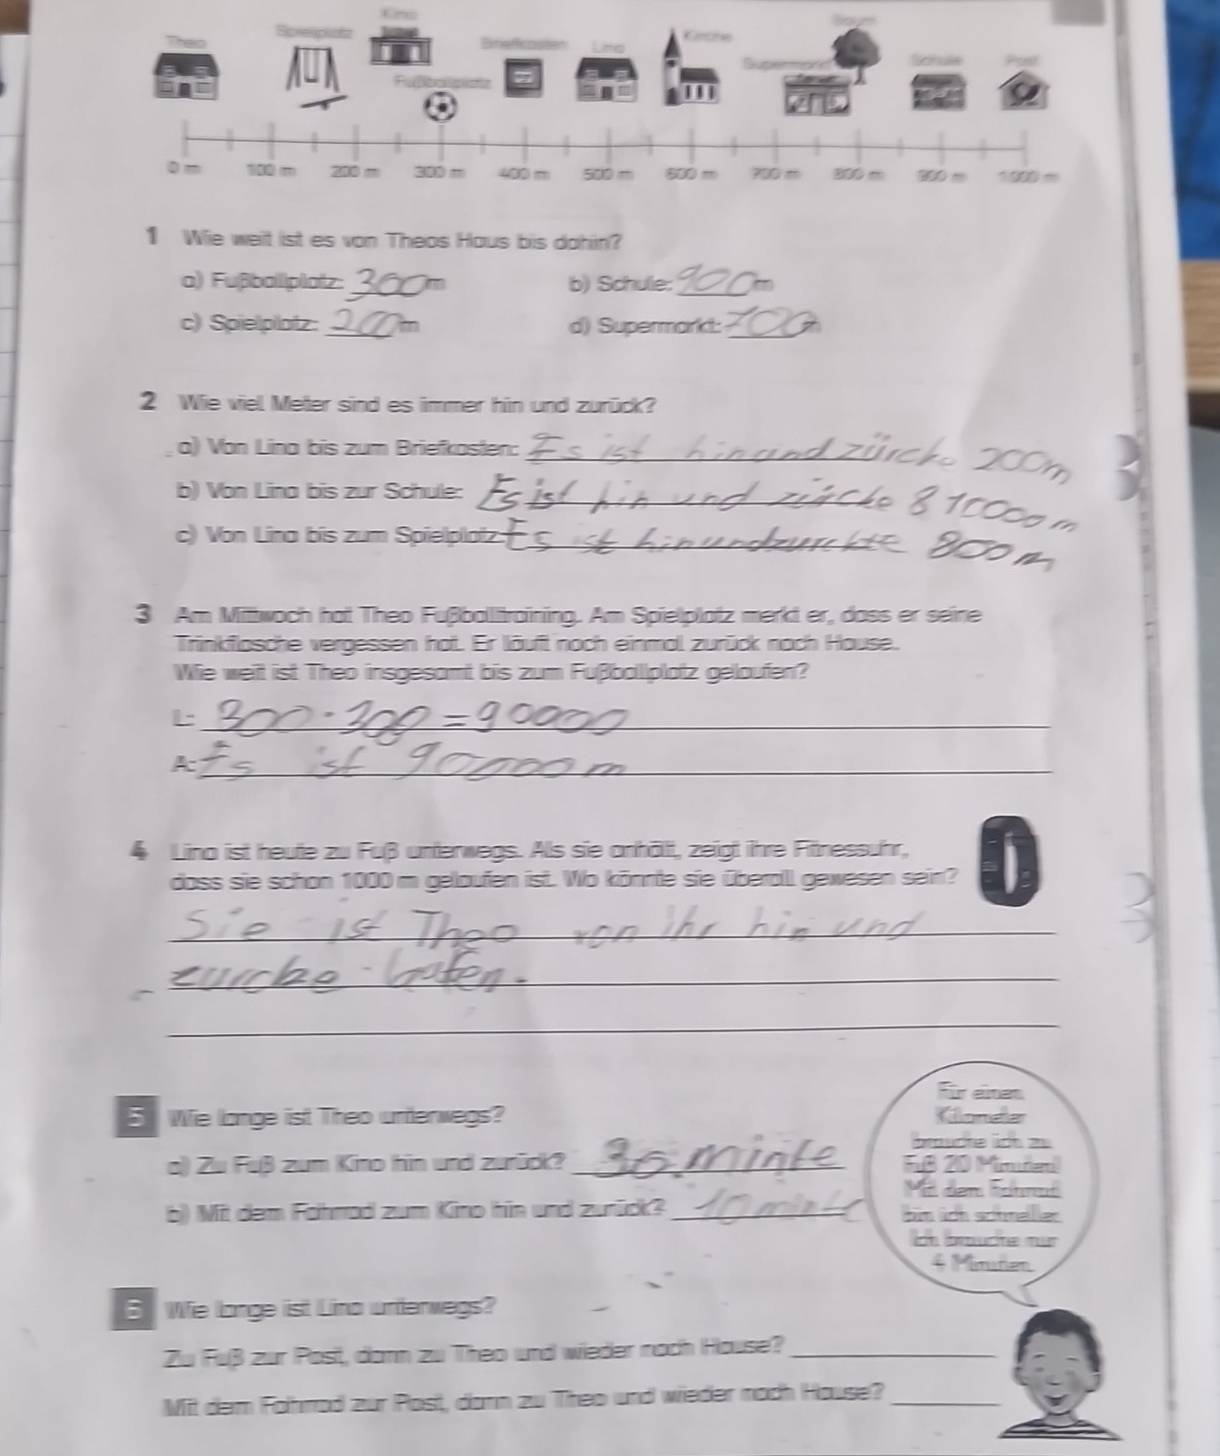 Kino
Baum
Theo Spielplatz Briefkasten Lina Kirche
Supermarkt Schule Post
Fußballplatz
0 m 100 m 200 m 300 m 400 m 500 m 600 m 700 m 800 m 900 m 1000 m
1 Wie weit ist es von Theos Haus bis dahin?
a) Fußballplatz: 300 m b) Schule: 900 m
c) Spielplatz: 200 m d) Supermarkt: 700 m
2 Wie viel Meter sind es immer hin und zurück?
a) Von Lina bis zum Briefkasten: Es ist hin und zürcke 200m
b) Von Lina bis zur Schule: Es ist hin und zürcke
c) Von Lina bis zum Spielplatz: Es ist hin und zurckte 800 m
3 Am Mittwoch hat Theo Fußballtraining. Am Spielplatz merkt er, dass er seine
Trinkflasche vergessen hat. Er läuft noch einmal zurück nach Hause.
Wie weit ist Theo insgesamt bis zum Fußballplatz gelaufen?
L: 300 · 300 = 90000
A: Es ist 90000 m
4 Lina ist heute zu Fuß unterwegs. Als sie anhält, zeigt ihre Fitnessuhr,
dass sie schon 1000 m gelaufen ist. Wo könnte sie überall gewesen sein?
Sie ist Theo von ihr hin und
zurcke
5 Wie lange ist Theo unterwegs?
a) Zu Fuß zum Kino hin und zurück? minte
b) Mit dem Fahrrad zum Kino hin und zurück? 10 minte
Für einen
Kilometer
brauche ich zu
Fuß 20 Minuten!
Mit dem Fahrrad
bin ich schneller.
Ich brauche nur
4 Minuten.
6 Wie lange ist Lina unterwegs?
Zu Fuß zur Post, dann zu Theo und wieder nach Hause?
Mit dem Fahrrad zur Post, dann zu Theo und wieder nach Hause?